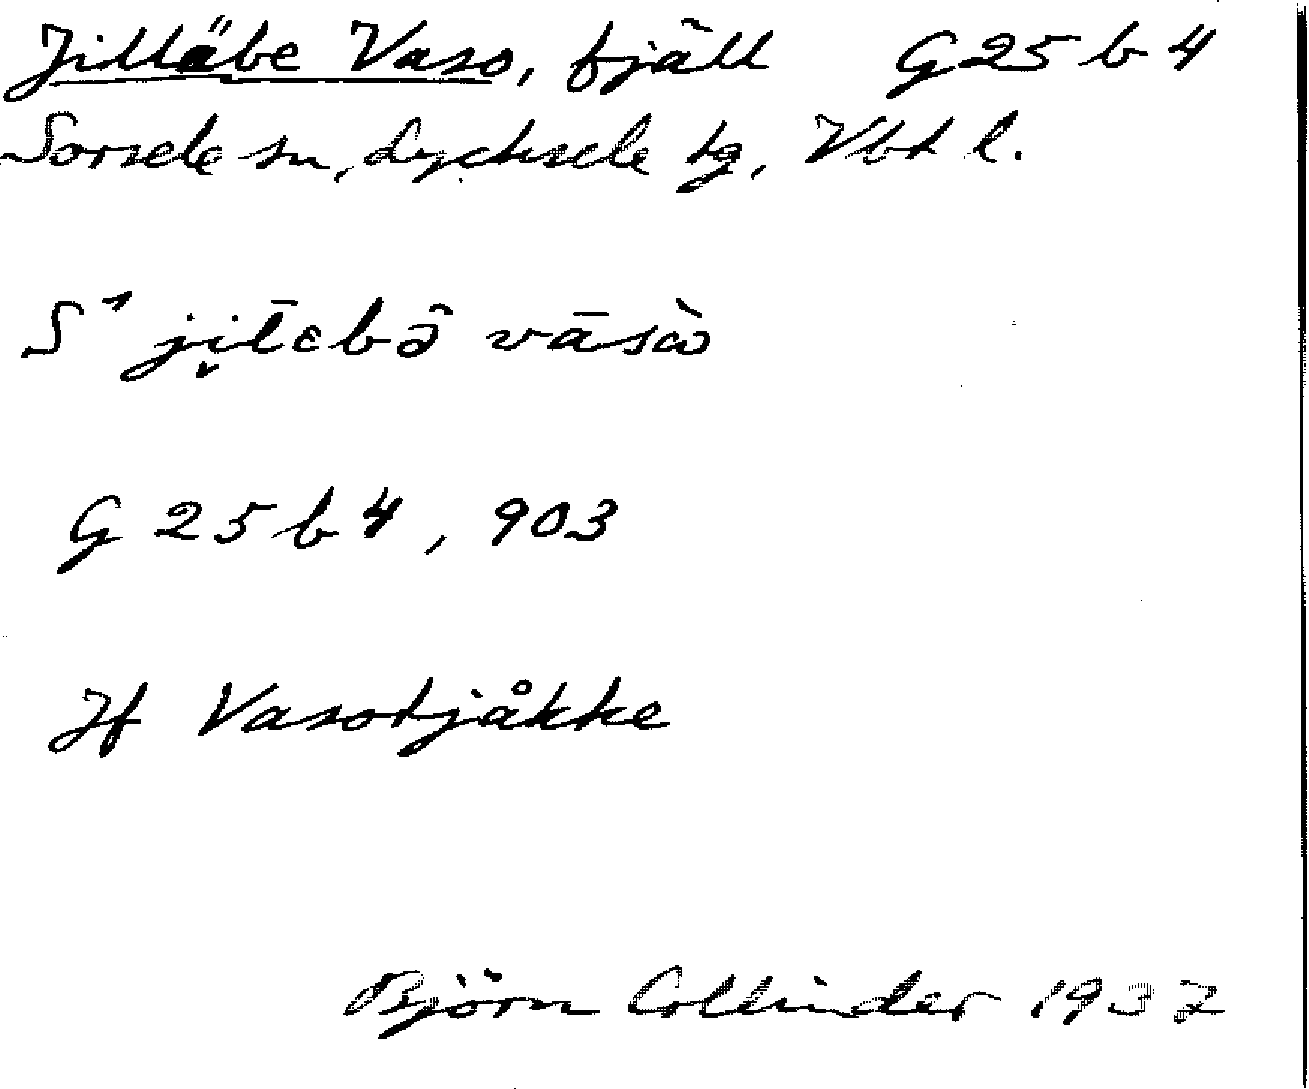 Jilläbe Vaso, fjäll G25 b 4
Sorsele sn, Lycksele tg, Vbt l.
S¹ ji̬l̄ɛbə̑ vāsὼ
G 25 b 4, 903
Jf Vasotjåkke
Björn Collinder 1937